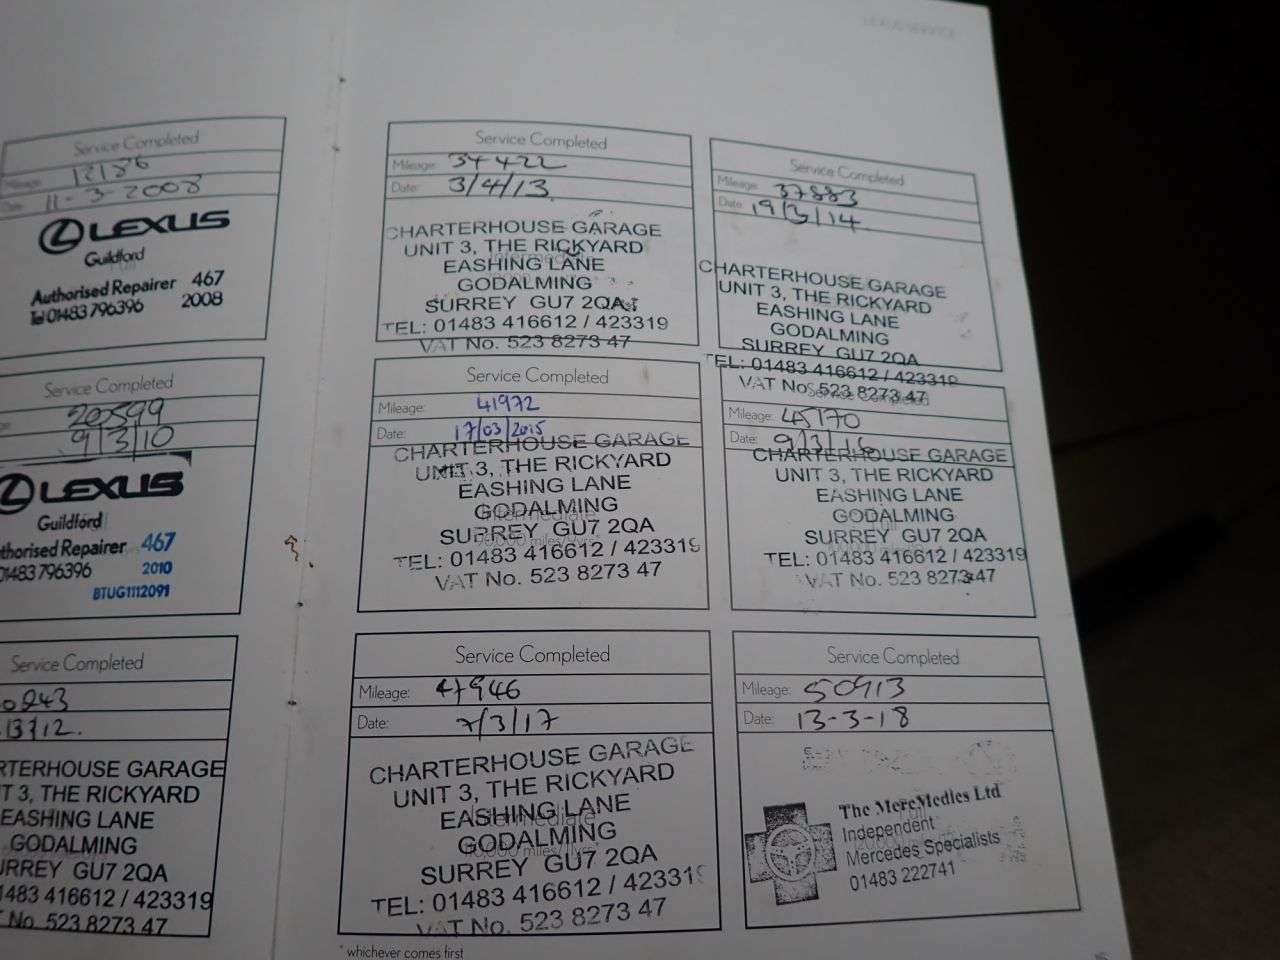 Service Completed
12186
11-3-2008
LEXUS
Guildford
Authorised Repairer 467
Tel 01483 796396 2008
Service Completed
20599
9/3/10
LEXUS
Guildford
thorised Repairer 467
01483 796396 2010
BTUG1112091
Service Completed
0243
13/12.
RTERHOUSE GARAGE
T 3, THE RICKYARD
EASHING LANE
GODALMING
URREY GU7 2QA
1483 416612 / 423319
No. 523 8273 47
Service Completed
Mileage: 34422
Date: 3/4/13
CHARTERHOUSE GARAGE
UNIT 3, THE RICKYARD
EASHING LANE
GODALMING
SURREY GU7 2QA
TEL: 01483 416612 / 423319
VAT No. 523 8273 47
Service Completed
Mileage: 41972
Date: 17/03/2015
CHARTERHOUSE GARAGE
UNIT 3, THE RICKYARD
EASHING LANE
GODALMING
Intermediate
SURREY GU7 2QA
TEL: 01483 416612 / 423319
VAT No. 523 8273 47
Service Completed
Mileage: 47946
Date: 7/3/17
CHARTERHOUSE GARAGE
UNIT 3, THE RICKYARD
EASHING LANE
Intermediate
GODALMING
SURREY GU7 2QA
TEL: 01483 416612 / 423319
VAT No. 523 8273 47
* whichever comes first
Service Completed
Mileage: 37883
Date: 19/3/14
CHARTERHOUSE GARAGE
UNIT 3, THE RICKYARD
EASHING LANE
GODALMING
SURREY GU7 2QA
TEL: 01483 416612 / 423319
VAT No. 523 8273 47
Service Completed
Mileage: 45170
Date: 9/3/16
CHARTERHOUSE GARAGE
UNIT 3, THE RICKYARD
EASHING LANE
GODALMING
SURREY GU7 2QA
TEL: 01483 416612 / 423319
VAT No. 523 8273 47
Service Completed
Mileage: 50913
Date: 13-3-18
The MercMedics Ltd
Independent
Mercedes Specialists
01483 222741